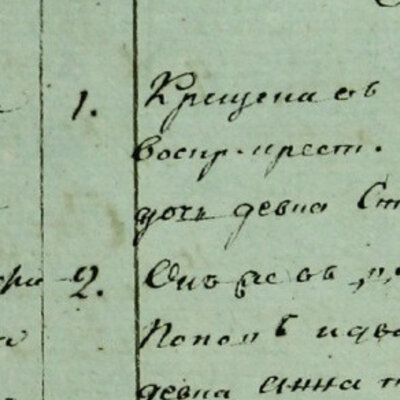 1. Крещена въ
воспр. крест.
дочь девка Ст
2. Онъ же въ
Попомъ идво
девка анна